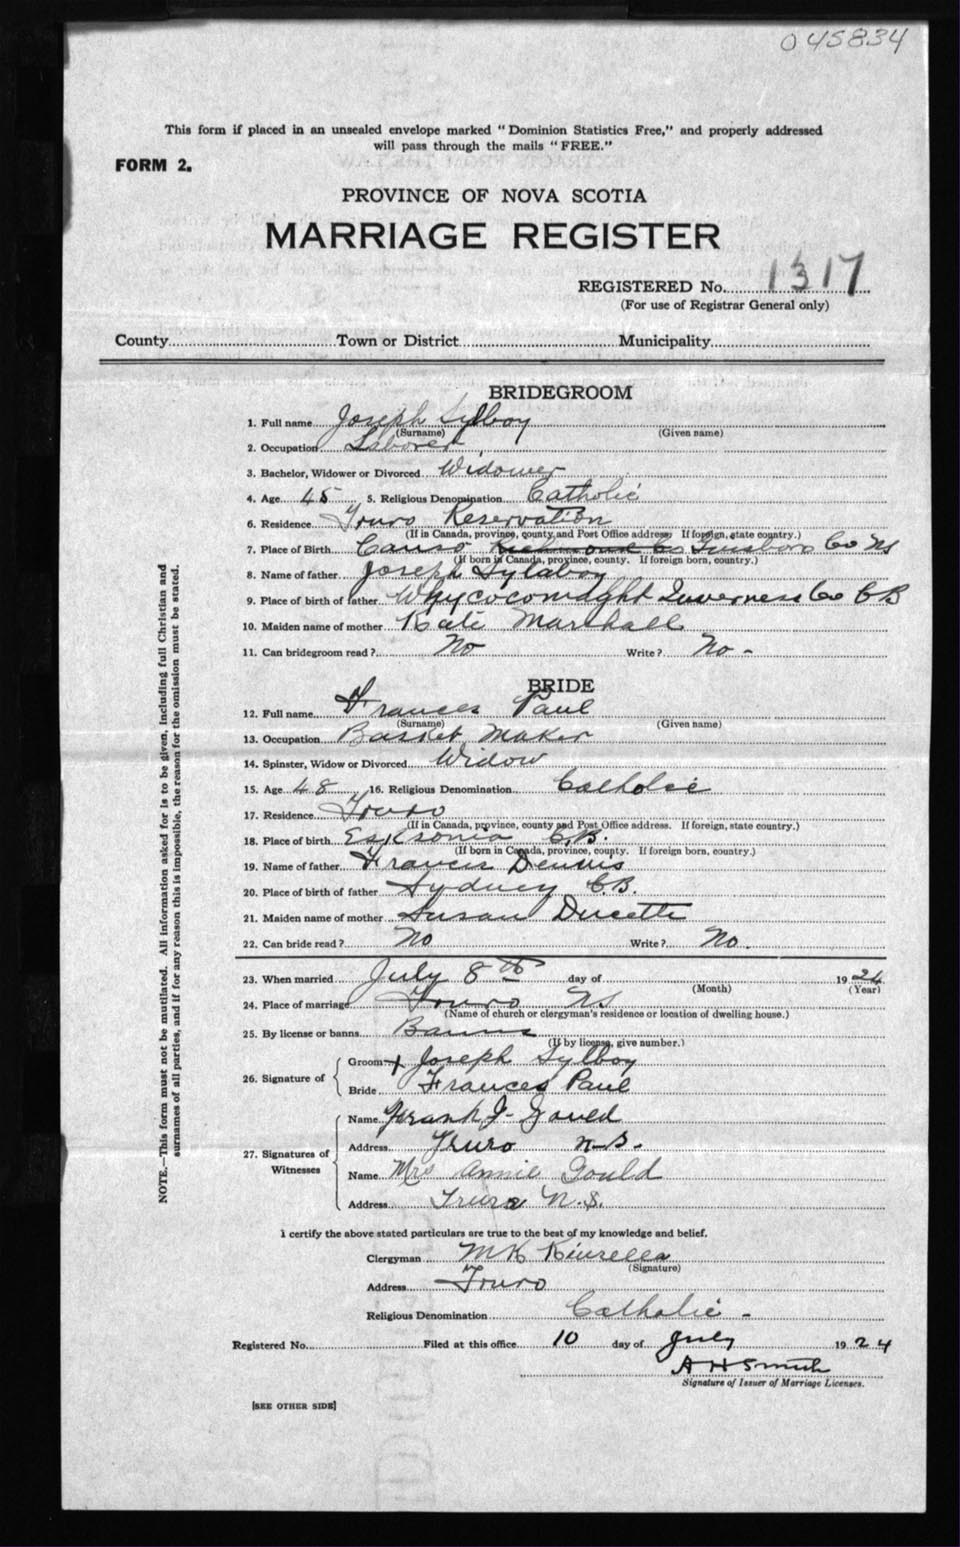 045834
This form if placed in an unsealed envelope marked "Dominion Statistics Free," and properly addressed
will pass through the mails "FREE."
FORM 2.
PROVINCE OF NOVA SCOTIA
MARRIAGE REGISTER
REGISTERED No. 1317
(For use of Registrar General only)
County Town or District Municipality
BRIDEGROOM
1. Full name Joseph Sylboy
(Surname) (Given name)
2. Occupation Laborer
3. Bachelor, Widower or Divorced Widower
4. Age 45 5. Religious Denomination Catholic
6. Residence Truro Reservation
(If in Canada, province, county and Post Office address. If foreign, state country.)
7. Place of Birth Canso Richmond Co Guysboro Co NS
(If born in Canada, province, county. If foreign born, country.)
8. Name of father Joseph Sylaboy
9. Place of birth of father Whycocomaght Inverness Co CB
10. Maiden name of mother Kate Marshall
11. Can bridegroom read? No Write? No -
BRIDE
12. Full name Frances Paul
(Surname) (Given name)
13. Occupation Basket Maker
14. Spinster, Widow or Divorced Widow
15. Age 48 16. Religious Denomination Catholic
17. Residence Truro
(If in Canada, province, county and Post Office address. If foreign, state country.)
18. Place of birth Esksonia C.B.
(If born in Canada, province, county. If foreign born, country.)
19. Name of father Francis Dennis
20. Place of birth of father Sydney C.B.
21. Maiden name of mother Susan Ducette
22. Can bride read? No Write? No.
23. When married July 8th day of 1924
(Month) (Year)
24. Place of marriage Truro NS
(Name of church or clergyman's residence or location of dwelling house.)
25. By license or banns Banns
(If by license, give number.)
26. Signature of Groom + Joseph Sylboy
Bride Frances Paul
27. Signatures of Witnesses Name Frank J- Gould
Address Truro N-S-
Name Mrs Annie Gould
Address Truro N.S.
I certify the above stated particulars are true to the best of my knowledge and belief.
Clergyman MK Kinsella
(Signature)
Address Truro
Religious Denomination Catholic -
Registered No. Filed at this office 10 day of July 1924
A H Smith
Signature of Issuer of Marriage Licenses.
[SEE OTHER SIDE]
NOTE.—This form must not be mutilated. All information asked for is to be given, including full Christian and
surnames of all parties, and if for any reason this is impossible, the reason for the omission must be stated.